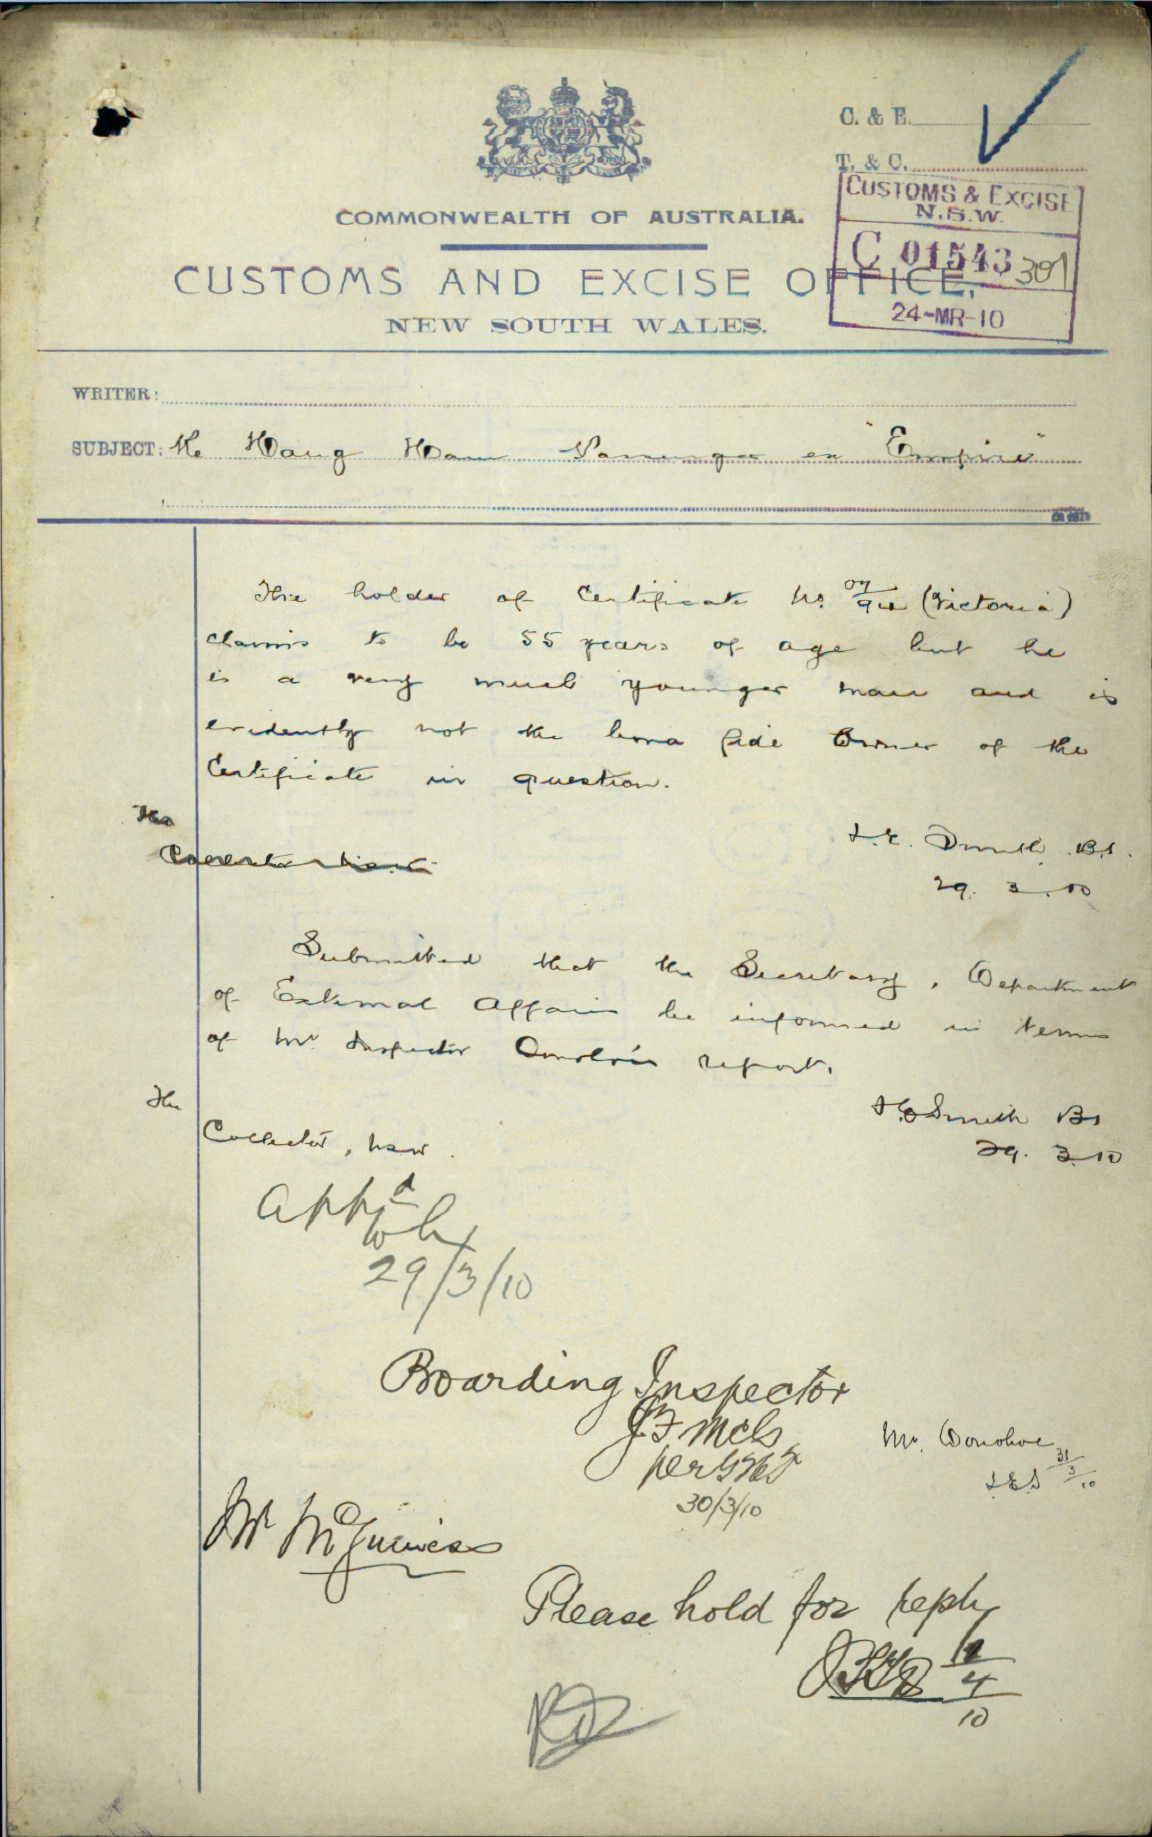 C. & E.
T. & C.
CUSTOMS & EXCISE
N.S.W.
C 01543 301
24-MR-10
COMMONWEALTH OF AUSTRALIA.
CUSTOMS AND EXCISE OFFICE,
NEW SOUTH WALES.
WRITER:
SUBJECT: Passenger ex "Empire"
The holder of Certificate No. 09/ (Victoria)
claims to be 55 years of age but he
is a very much younger man and is
evidently not the bona fide owner of the
Certificate in question.
The
Collector
Smith B.I.
29. 3. 10
Submitted that the Secretary, Department
of External Affairs be informed in terms
of Mr Inspector report.
The
Collector, NSW.
Smith BI
29. 3. 10
Appd
29/3/10
Boarding Inspector
per
30/3/10
Mr. Donohoe
31/3/10
Mr McGuiness
Please hold for reply
4
10